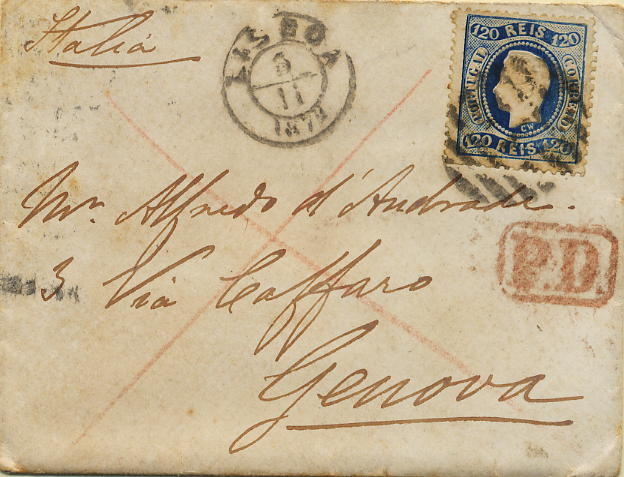 Italia
LISBOA
5
11
1873
120 REIS 120
PORTUGAL
CORREIO
CW
120 REIS 120
Mr. Alfredo d'Andrade.
P.D.
3 Via Caffaro
Genova